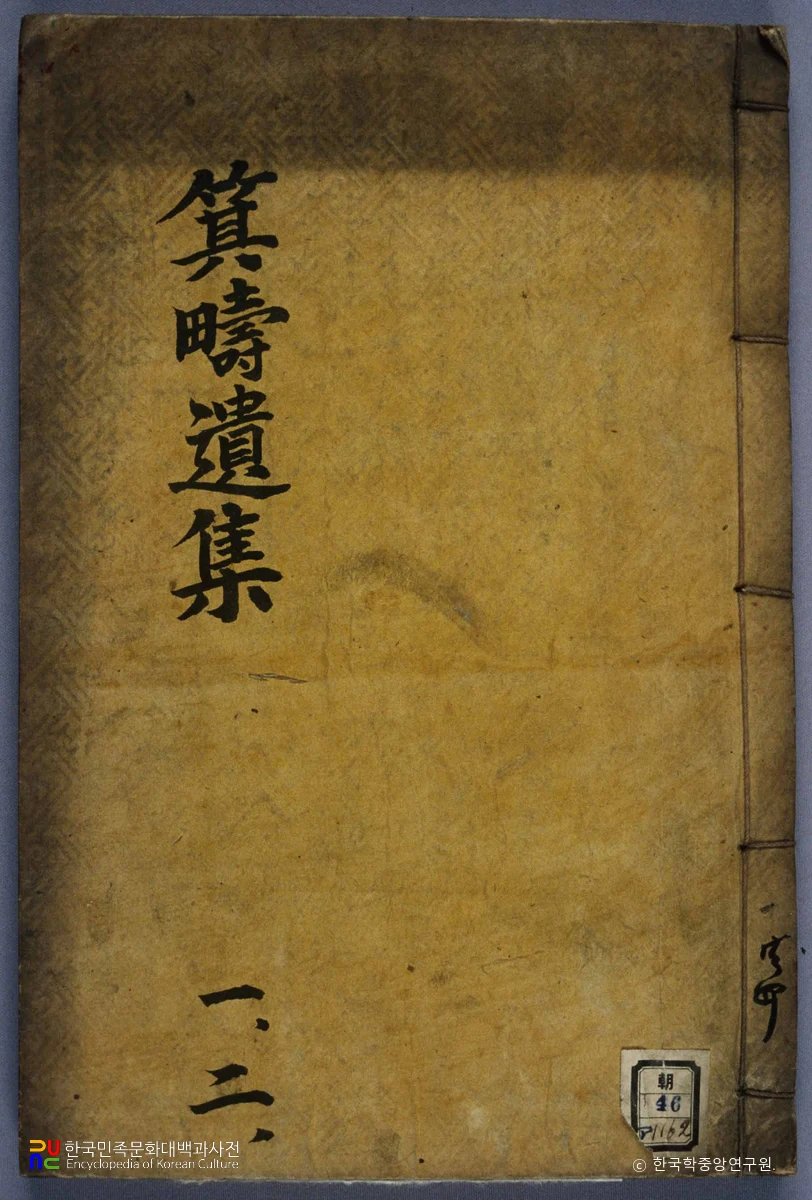 箕疇遺集
一、二、
朝
46
한국민족문화대백과사전
Encyclopedia of Korean Culture
© 한국학중앙연구원.